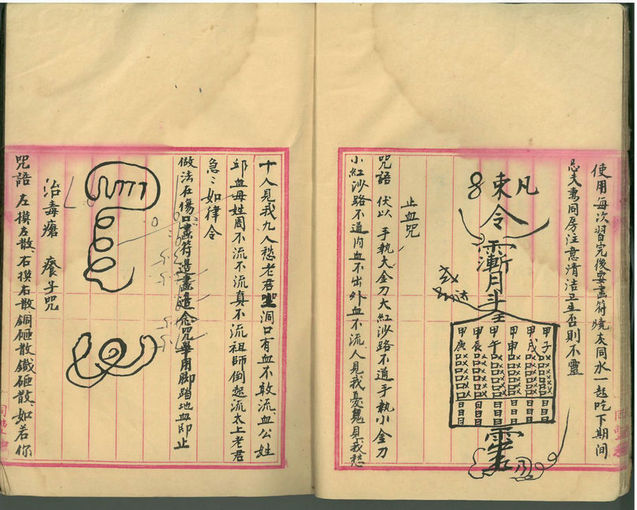 使用每次習完後要畫符燒灰同水一起吃下期間
忌夫妻同房注意清洁卫生否則不靈
凡
東
8
令
甲子
甲戌
甲申
甲午
甲辰
甲庚
止血咒
咒語 伏以 手執大金刀大紅沙路不通手執小金刀
小紅沙路不通內血不出外血不流人見我憂鬼見我愁
十人見我九人愁老君 洞口有血不敢流血公姓
邱血母姓周不流不流真不流祖師倒起流太上老君
急急如律令
做法在傷口畫符 用脚踏地血即止
治毒瘡 癢子咒
咒語 左摸左散右摸右散銅砸散鐵砸散如若你